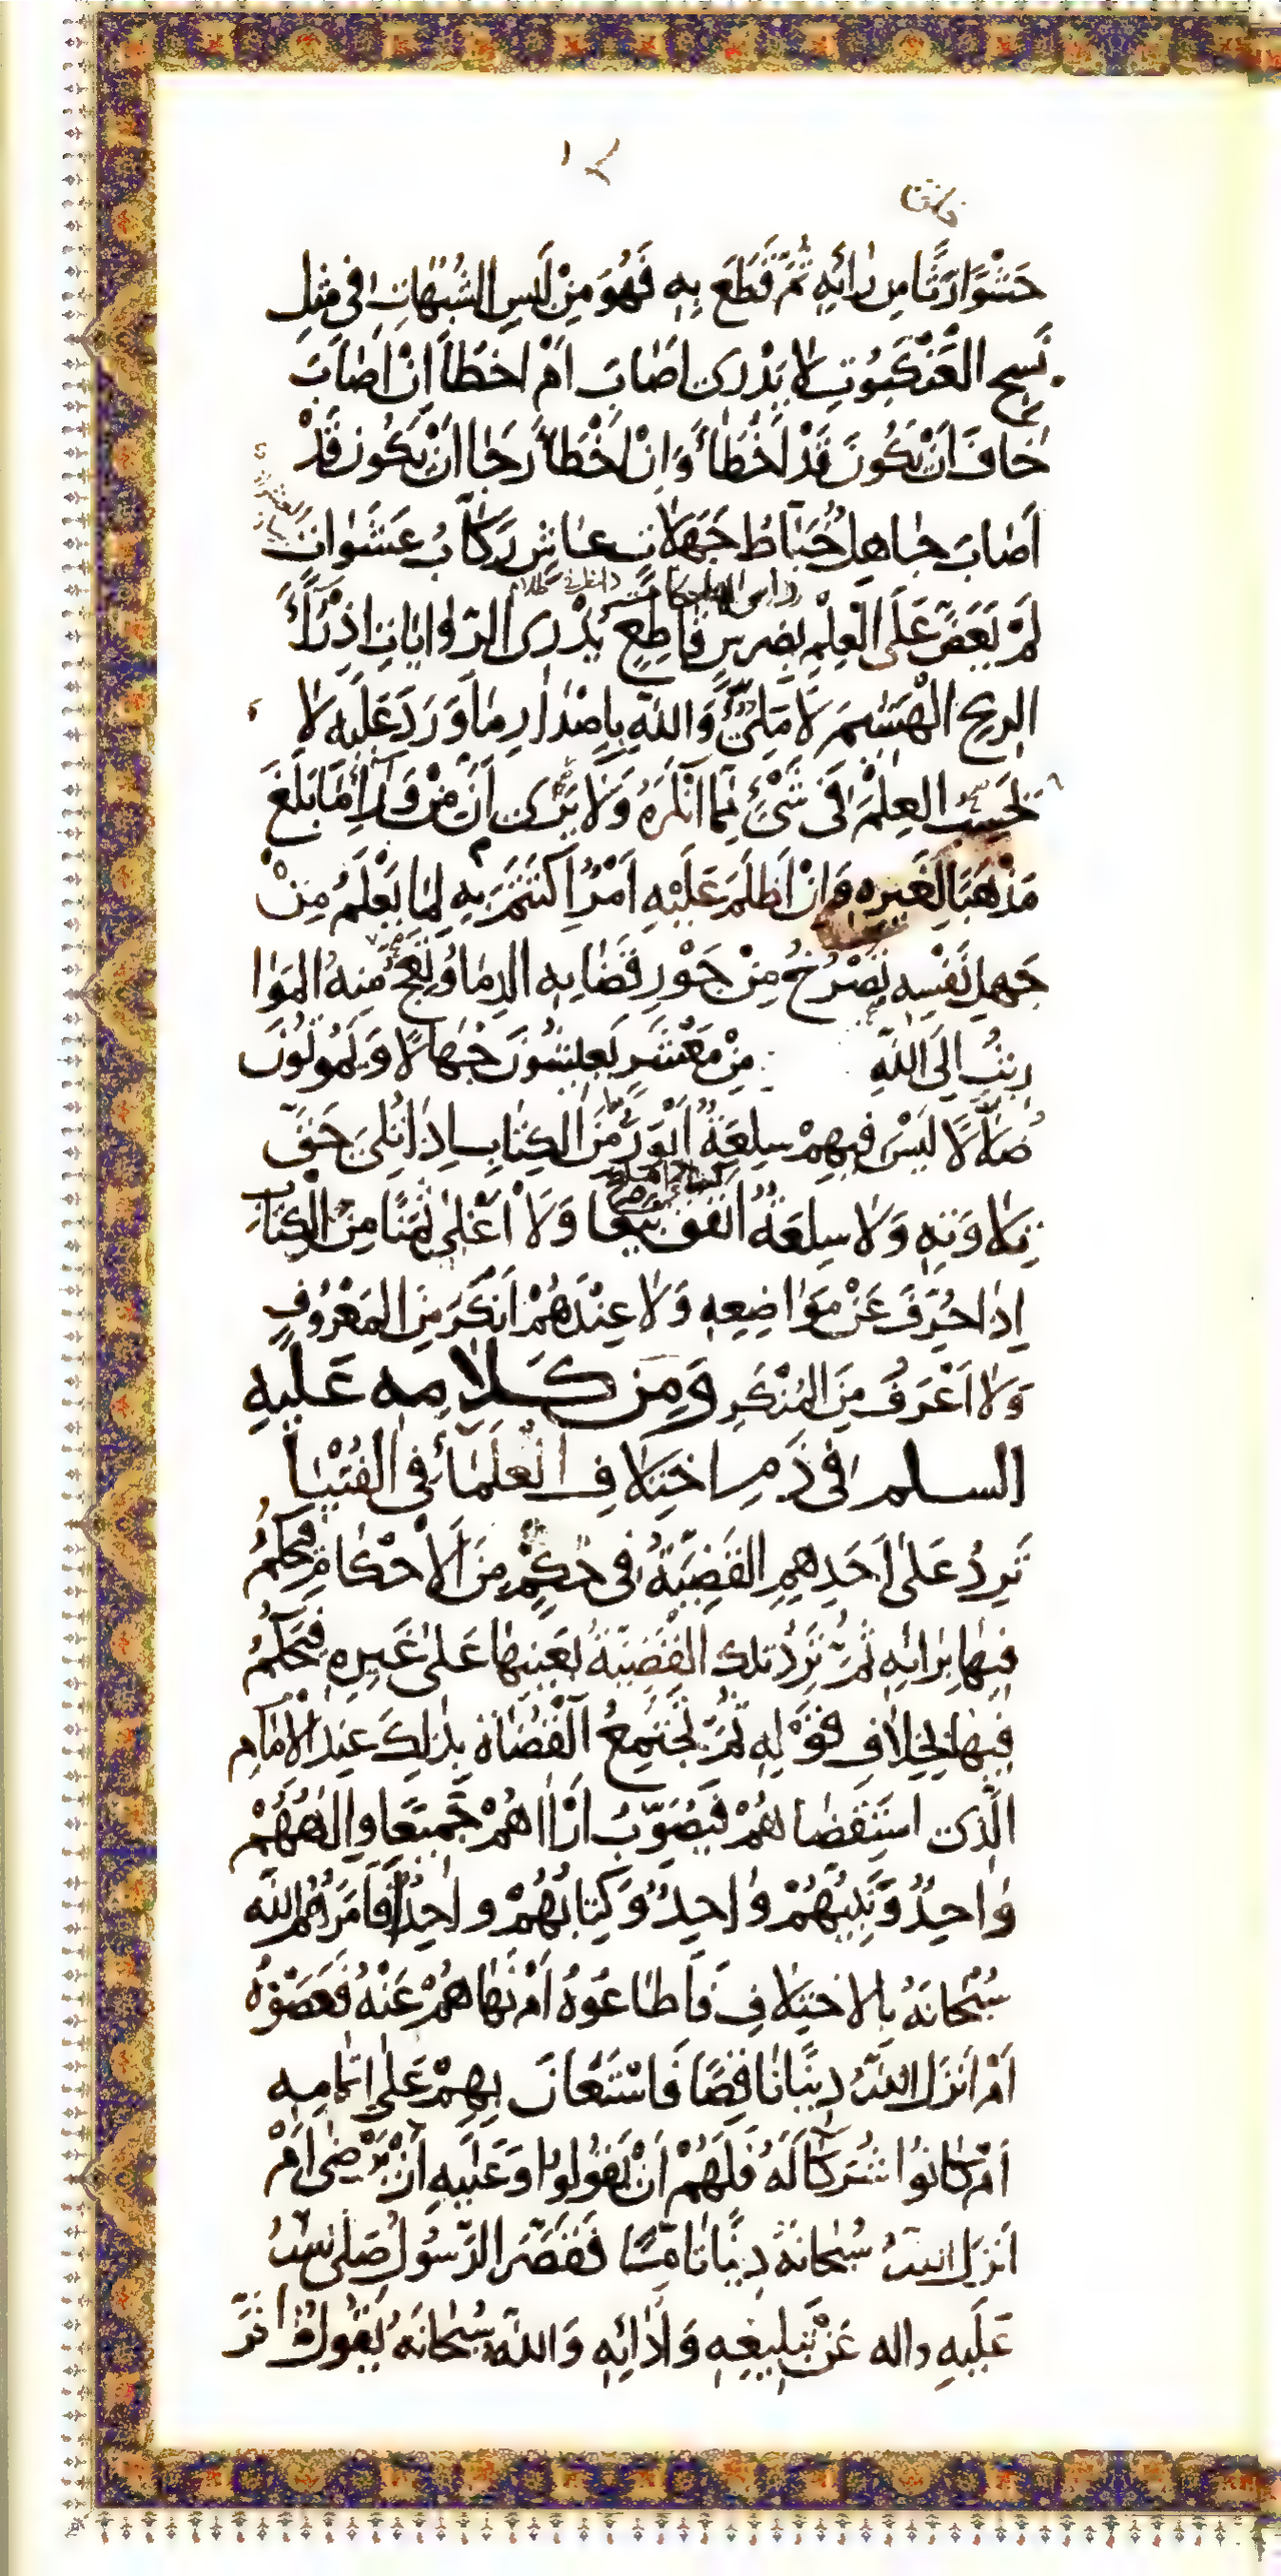 حَشْوًا رَثًّا مِن رَائِهِ ثُمَّ قَطَعَ بِهِ فَهُوَ مِنْ لَبْسِ الشُّبُهَاتِ فِى مِثلِ
نَسجِ الْعَنْكَبُوتِ لَا يَدْرِى اَصَابَ اَمْ اَخطَأَ اِنْ اَصَابَ
خَافَ اَنْ يَكُونَ قَدْ اَخْطَأَ وَاِنْ اَخْطَأَ رَجَا اَنْ يَكُونَ قَدْ
اَصَابَ جَاهِلٌ خَبَّاطُ جَهَلَاتٍ عَاشٍ رَكَّابُ عَشَوَاتٍ
لَمْ يَعَضَّ عَلَى الْعِلْمِ بِضِرسٍ قَاطِعٍ يُذْرِى الرِّوَايَاتِ اِذْرَاءَ
الرِيحِ الْهَشِيمَ لَا مَلِىٌّ وَاللّٰهِ بِاِصْدَارِ مَا وَرَدَ عَلَيْهِ لَا
يَحسَبُ العِلْمَ فِى شَىْءٍ مِمَّا اَنْكَرَهُ وَلَا يَرَى اَنَّ مِنْ وَرَاءِ مَا بَلَغَ
مَذْهَبًا لِغَيرِهِ وَاِنْ اَظلَمَ عَلَيْهِ اَمْرٌ اكْتَتَمَ بِهِ لِمَا يَعْلَمُ مِنْ
جَهلِ نَفْسِهِ تَصْرُخُ مِنْ جَوْرِ قَضَائِهِ الدِمَاءُ وَتَعِجُّ مِنهُ المَوَا
رِيثُ اِلَى اللّٰهِ مِنْ مَعْشَرٍ يَعِيشُونَ جُهَّالًا وَيَمُوتُونَ
ضُلَّالًا لَيْسَ فِيهِمْ سِلعَةٌ اَبْوَرُ مِنَ الكِتَابِ اِذَا تُلِىَ حَقَّ
تِلَاوَتِهِ وَلَا سِلعَةٌ اَنفَقُ بَيْعًا وَلَا اَغْلَى ثَمَنًا مِنَ الْكِتَابِ
اِذَا حُرِّفَ عَنْ مَوَاضِعِهِ وَلَا عِنْدَهُمْ اَنكَرُ مِنَ المَعْرُوفِ
وَلَا اَعْرَفُ مِنَ المُنْكَرِ وَمِن كَلَامِهِ عَلَيهِ
السلم فِى ذَمِ اختِلَافِ الْعُلَمَاءِ فِى الْفُتْيَا
تَرِدُ عَلَى اَحَدِهِمِ القَضِيَّةُ فِى حُكمٍ مِنَ الْاَحْكَامِ فَيَحكُمُ
فِيهَا بِرَائِهِ ثُمَّ تَرِدُ تلك القَضِيَّةُ بِعَينِهَا عَلَى غَيرِهِ فَيَحكُمُ
فِيهَا بِخِلَافِ قَوْلِهِ ثُمَّ يَجتَمِعُ القُضَاةُ بِذٰلِكَ عِندَ الاِمَامِ
الَّذِى استَقضَاهُمْ فَيُصَوِّبُ اٰرَاءَهُمْ جَمِيعًا وَاِلٰهُهُمْ
وَاحِدٌ وَنَبِيُّهُمْ وَاحِدٌ وَكِتَابُهُمْ وَاحِدٌ اَفَاَمَرَهُمُ اللّٰه
سُبْحَانَهُ بِالاختِلَافِ فَاَطَاعُوهُ اَمْ نَهَاهُمْ عَنْهُ فَعَصَوْهُ
اَمْ اَنزَلَ اللّٰهُ دِينًا نَاقِصًا فَاسْتَعَانَ بِهِمْ عَلَى اِتمَامِهِ
اَمْ كَانُوا شُرَكَاءَ لَهُ فَلَهُمْ اَنْ يَقُولُوا وَعَلَيهِ اَنْ يَرْضَى اَمْ
اَنزَلَ اللّٰهُ سُبحَانَهُ دِينًا تَامًّا فَقَصَّرَ الرَّسُولُ صَلَّى اللّٰهُ
عَلَيهِ واله عَنْ تَبلِيغِهِ وَاَدَائِهِ وَاللّٰهُ سُبْحَانَهُ يَقُولُ